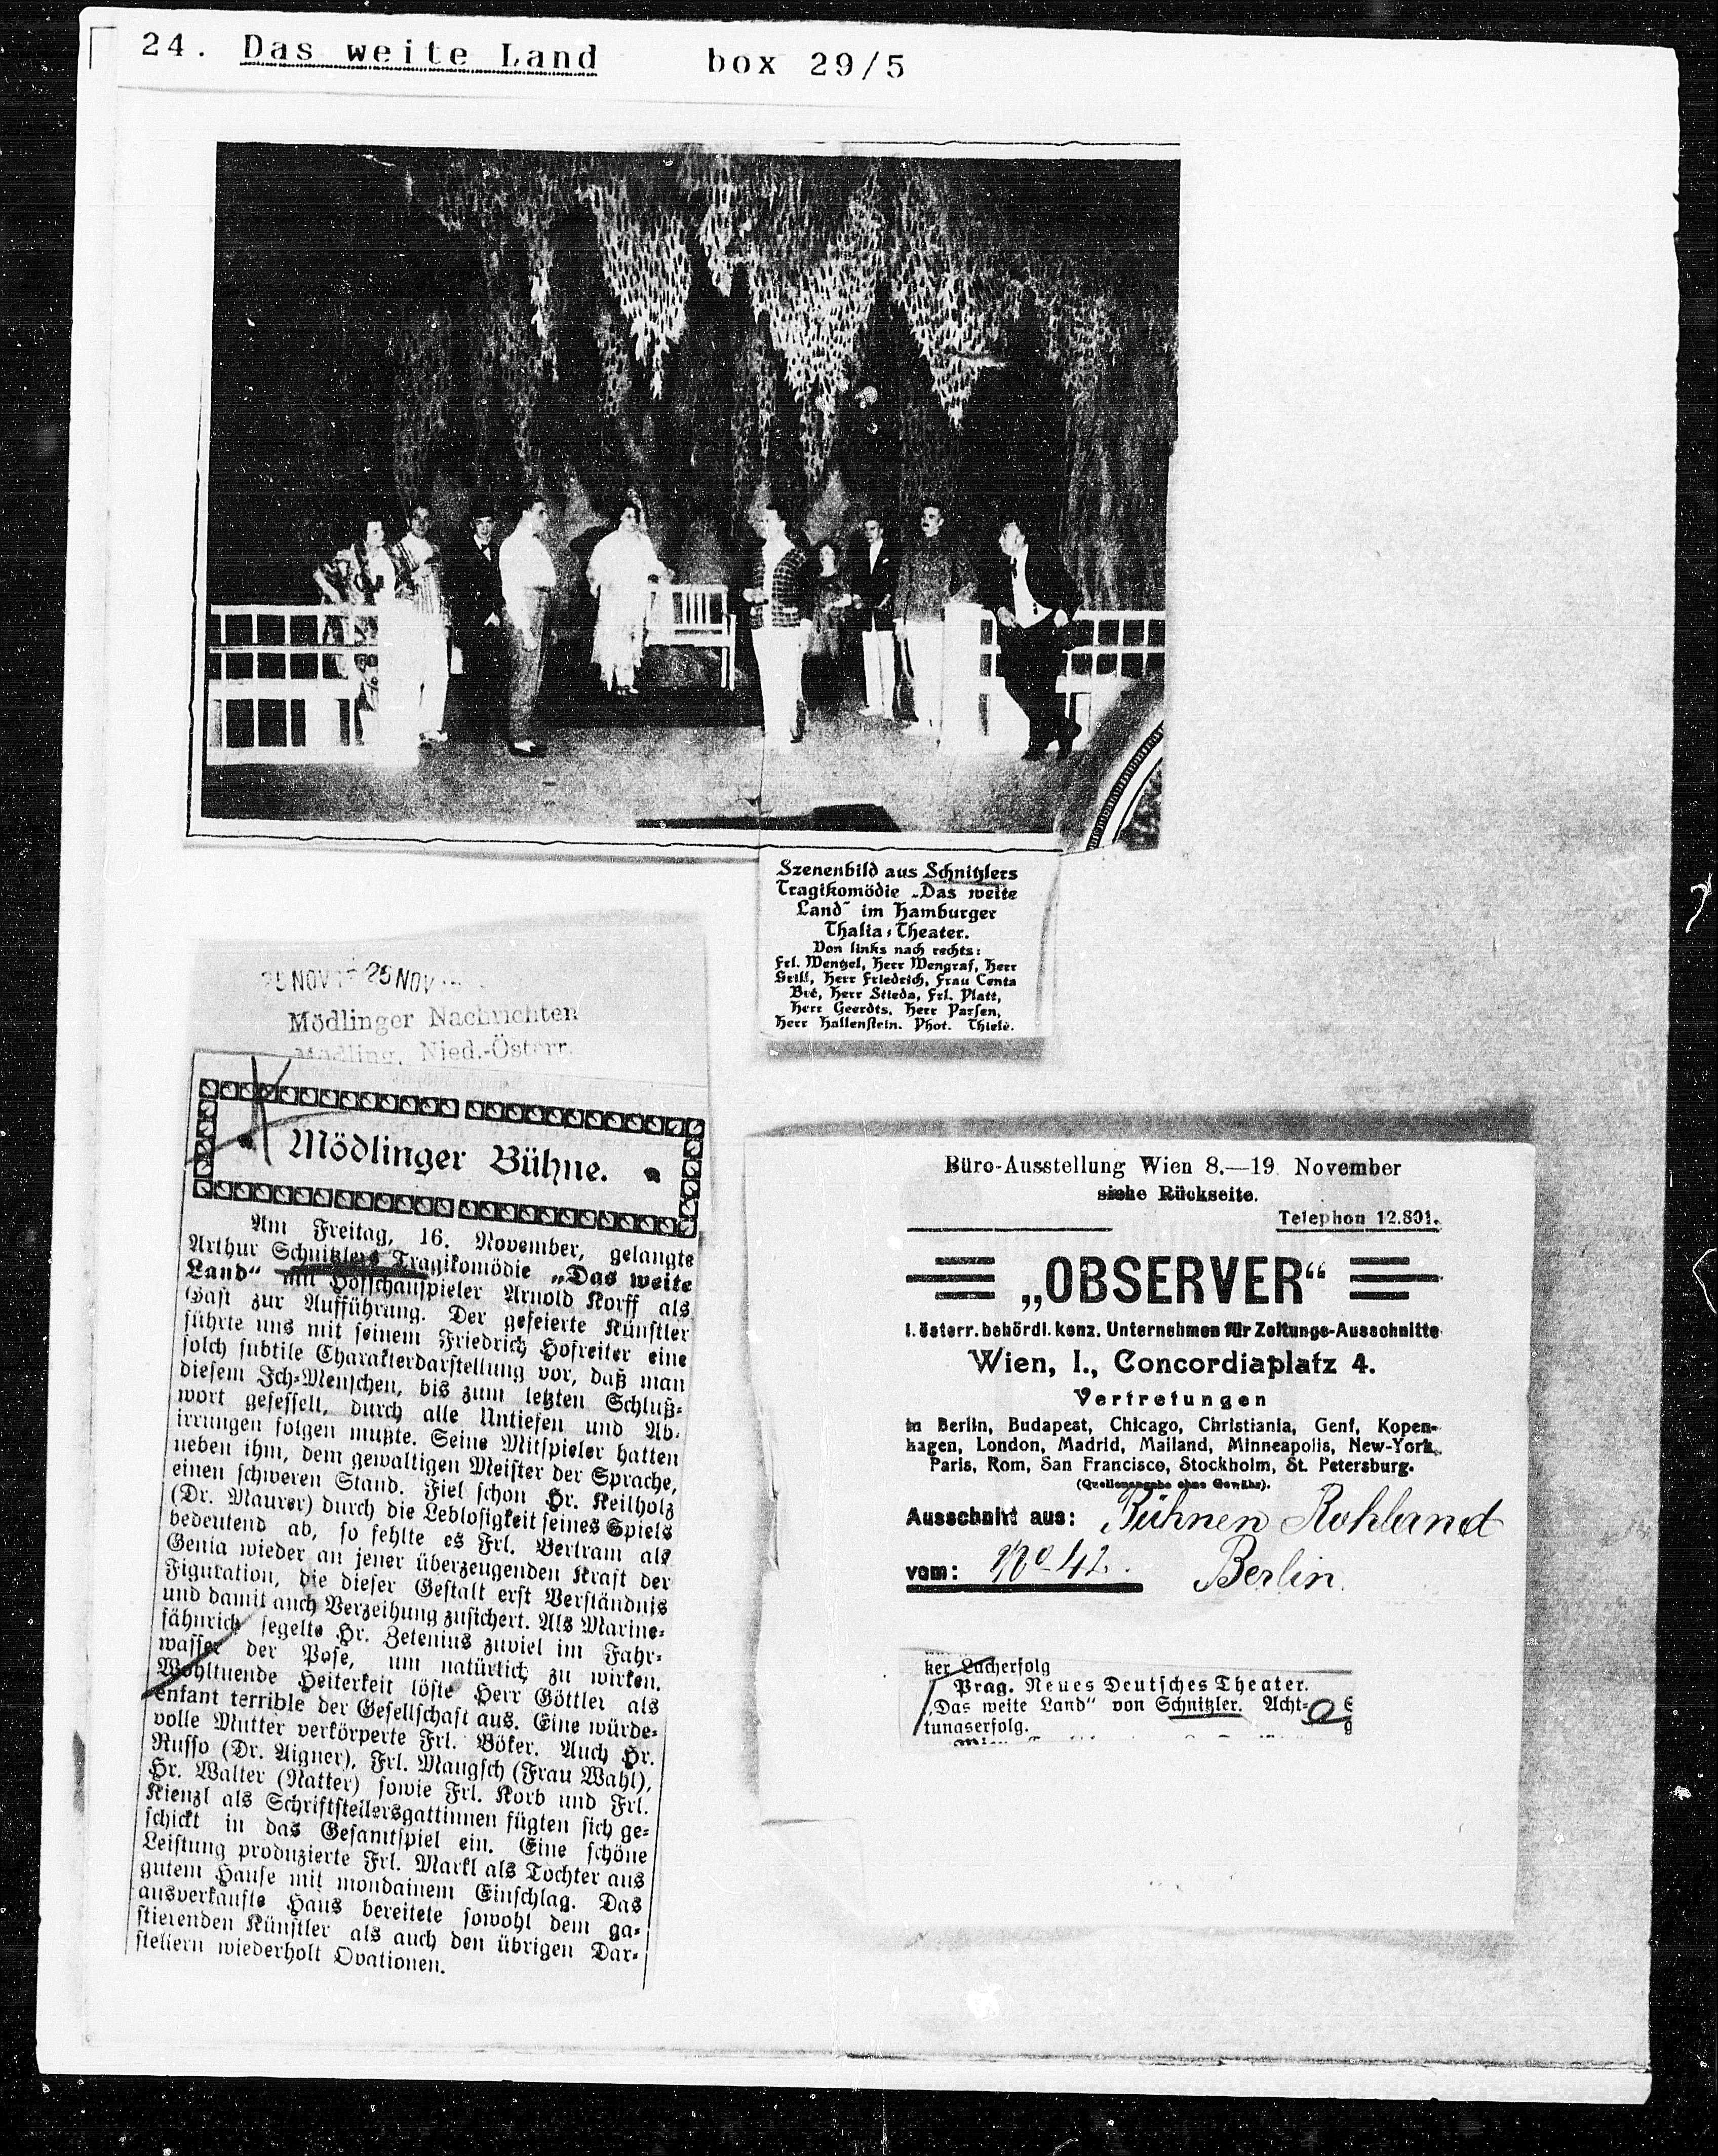 24. Das weite Land box 29/5
Szenenbild aus Schnitzlers
Tragikomödie „Das weite
Land" im Hamburger
Thalia-Theater.
Von links nach rechts:
Frl. Wentzel, Herr Wengraf, Herr
Grill, Herr Friedrich, Frau Centa
Bré, Herr Stieda, Frl. Platt,
Herr Geerdts, Herr Parsen,
Herr Hallenstein. Phot. Thiele.
25 NOV 25 NOV
Mödlinger Nachrichten
Mödling, Nied.-Österr.
Mödlinger Bühne.
Am Freitag, 16. November, gelangte
Arthur Schnitzlers Tragikomödie „Das weite
Land" mit Hofschauspieler Arnold Korff als
Gast zur Aufführung. Der gefeierte Künstler
führte uns mit seinem Friedrich Hofreiter eine
solch subtile Charakterdarstellung vor, daß man
diesem Ich-Menschen, bis zum letzten Schluß-
wort gefesselt, durch alle Untiefen und Ab-
irrungen folgen mußte. Seine Mitspieler hatten
neben ihm, dem gewaltigen Meister der Sprache,
einen schweren Stand. Fiel schon Hr. Keilholz
(Dr. Maurer) durch die Leblosigkeit seines Spiels
bedeutend ab, so fehlte es Frl. Bertram als
Genia wieder an jener überzeugenden Kraft der
Figuration, die dieser Gestalt erst Verständnis
und damit auch Verzeihung zusichert. Als Marine-
fähnrich segelte Hr. Zetenius zuviel im Fahr-
wasser der Pose, um natürlich zu wirken.
Wohltuende Heiterkeit löste Herr Göttler als
enfant terrible der Gesellschaft aus. Eine würde-
volle Mutter verkörperte Frl. Böker. Auch Hr.
Russo (Dr. Aigner), Frl. Maugsch (Frau Wahl),
Hr. Walter (Natter) sowie Frl. Korb und Frl.
Kienzl als Schriftstellersgattinnen fügten sich ge-
schickt in das Gesamtspiel ein. Eine schöne
Leistung produzierte Frl. Markl als Tochter aus
gutem Hause mit mondainem Einschlag. Das
ausverkaufte Haus bereitete sowohl dem ga-
stierenden Künstler als auch den übrigen Dar-
stellern wiederholt Ovationen.
Büro-Ausstellung Wien 8.—19. November
siehe Rückseite.
Telephon 12.801.
„OBSERVER"
I. österr. behördl. konz. Unternehmen für Zeitungs-Ausschnitte
Wien, I., Concordiaplatz 4.
Vertretungen
in Berlin, Budapest, Chicago, Christiania, Genf, Kopen-
hagen, London, Madrid, Mailand, Minneapolis, New-York,
Paris, Rom, San Francisco, Stockholm, St. Petersburg.
(Quellenangabe ohne Gewähr).
Ausschnitt aus: Bühnen Rohland
vom: No 42. Berlin.
ker Lacherfolg
Prag. Neues Deutsches Theater.
„Das weite Land" von Schnitzler. Acht-
tungserfolg.